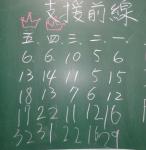 支援前線
五、四、三、二、一
6、6、10、5、6
13、14、11、5、15
18、13、7、6、12
17、22、11、12、16
32、31、22、16、29